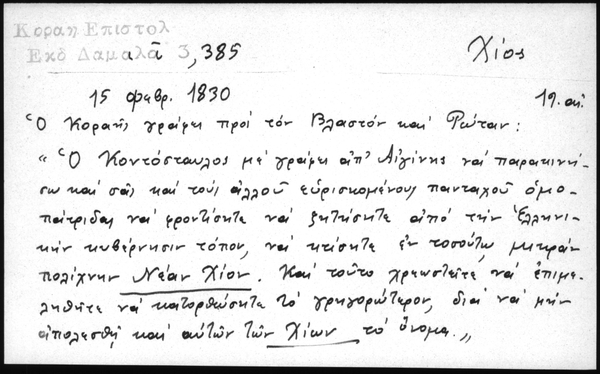 Κοραη Επιστολ
Εκδ Δαμαλᾶ 3, 385
Χίος
15 φεβρ. 1830
19. αἰ.
Ὁ Κοραῆς γράφει πρὸς τὸν Βλαστὸν καὶ Ρώταν:
« Ὁ Κοντόσταυλος μὲ γράφει ἀπ' Αἰγίνης νὰ παρακινή-
σω καὶ σᾶς καὶ τοὺς ἀλλοῦ εὑρισκομένους πανταχοῦ ὁμο-
πάτριδας νὰ φροντίσητε νὰ ζητήσητε ἀπὸ τὴν Ἑλληνι-
κὴν κυβέρνησιν τόπον, νὰ κτίσητε ἐν τοσούτῳ μικρὰν
πολίχνην Νέαν Χίον. Καὶ τοῦτο χρεωστεῖτε νὰ ἐπιμε-
ληθῆτε νὰ κατορθώσητε τὸ γρηγορώτερον, διὰ νὰ μὴν
ἀπολεσθῇ καὶ αὐτῶν τῶν Χίων τὸ ὄνομα.»